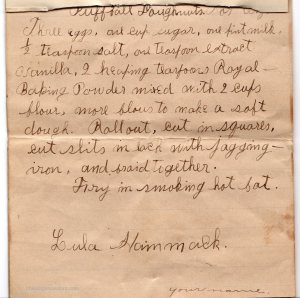 Puffball Doughnuts
Three eggs, one cup sugar, one pint milk,
½ teaspoon salt, one teaspoon extract
vanilla, 2 heaping teaspoons Royal
Baking Powder mixed with 2 cups
flour, more flour to make a soft
dough. Roll out, cut in squares,
cut slits in each with jagging-
iron, and braid together.
Fry in smoking hot fat.
Lula Hammack.
your name.